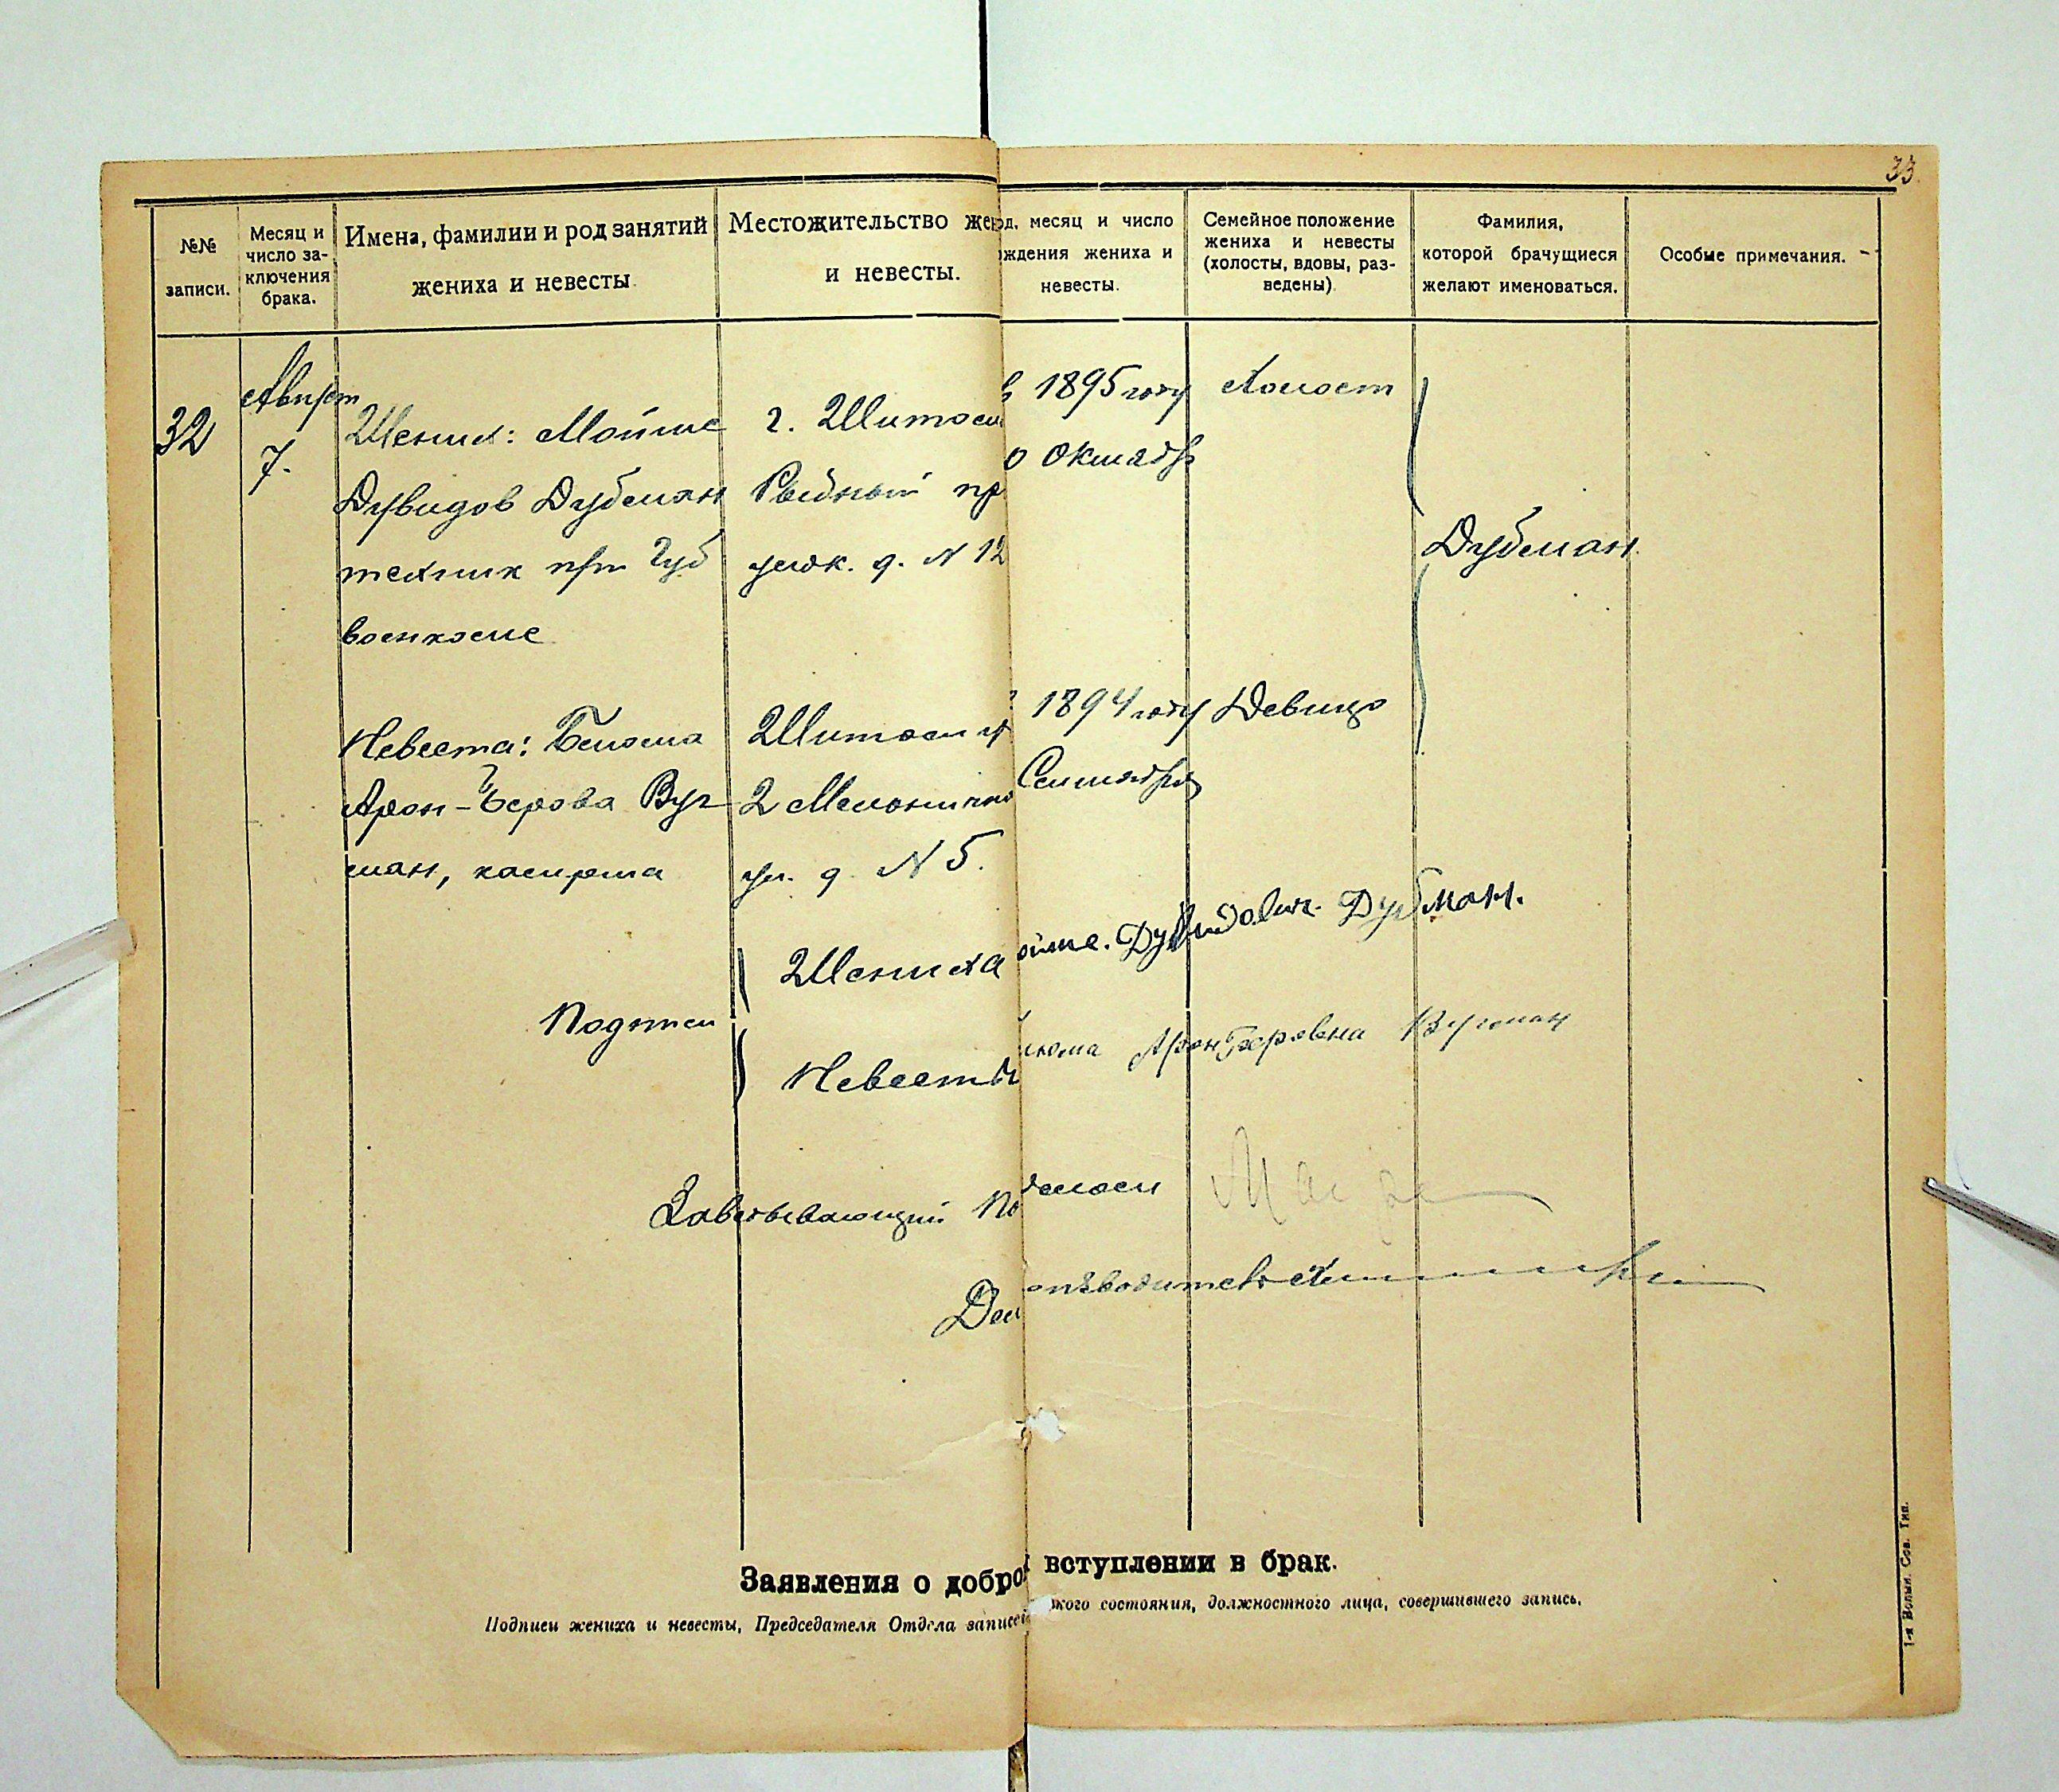 33
№№ записи.
Месяц и число заключения брака.
Имена, фамилии и род занятий
жениха и невесты.
Местожительство жен
и невесты.
од, месяц и число
ждения жениха и
невесты.
Семейное положение
жениха и невесты
(холосты, вдовы, раз-
ведены)
Фамилия,
которой брачущиеся
желают именоваться.
Особые примечания.
32
Август
7.
Жених: Мойше
Дувидов Дубман
техник при Губ
военкоме
г. Житом
Рыбный пр
д. N 12
в 1895 году
Октябр
Холост
Дубман
Невеста:
Арон-Берова Вуг
ман, касирша
Житоми
2 Мельнично
ул. д N 5.
1894 году
Сентября
Девица
Подписи
Жениха
ойше. Дувидович. Дубман.
Невесты
Арон Беровна Вугман
Заведывающий По
Дел
опроизводитель
Заявления о добро
вступлении в брак.
Подписи жениха и невесты, Председателя Отдела записей
кого состояния, должностного лица, совершившего запись.
1-я Волын. Сов. Тип.